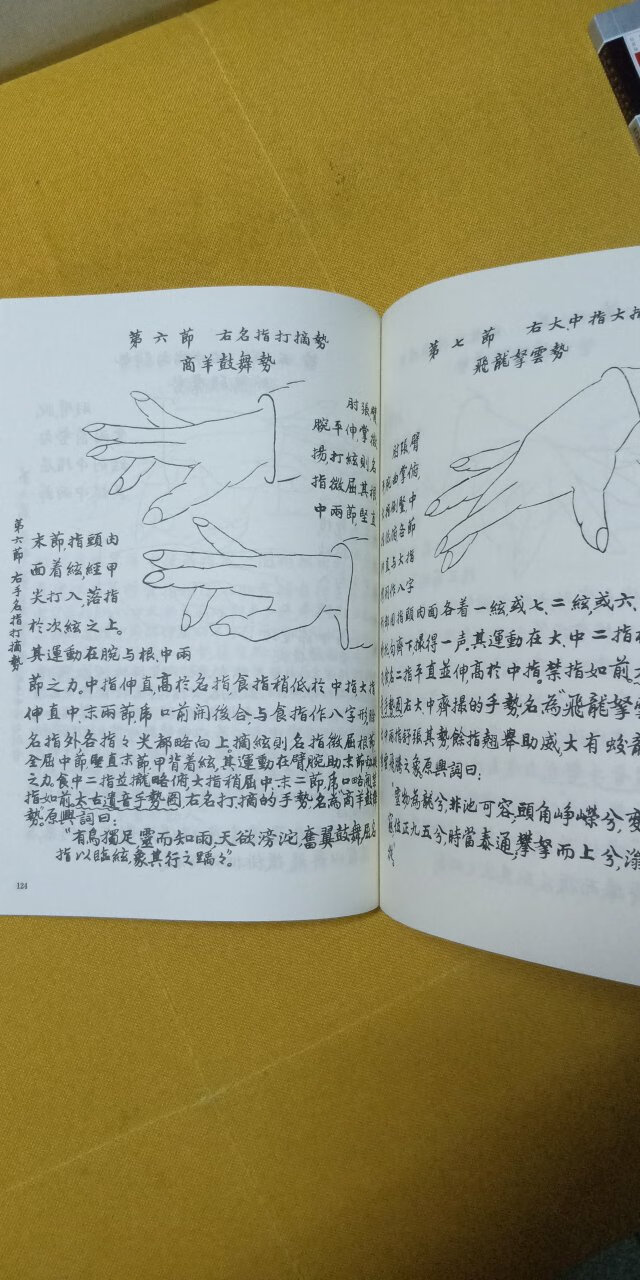 第六節 右名指打摘勢
商羊鼓舞勢
肘張臂
腕平伸,掌微
揚,打絃則名
指微屈其根
中兩節,堅直
末節,指頭肉
面着絃,經甲
尖打入,落指
於次絃之上。
其運動在腕与根、中兩
節之力。中指伸直高於名指,食指稍低於中指,大指
伸直中、末兩節,虎口前開後合,与食指作八字形,除
名指外各指々尖都略向上。摘絃則名指微屈根節
全屈中節,堅直末節,甲背着絃,其運動在臂腕助末節
之力。食中二指並攏略俯,大指稍屈中、末二節,虎口略開,禁
指如前。太古遺音手勢图右名打摘的手勢,名為"商羊鼓舞
勢。"原興詞曰:
"有鳥獨足,靈而知雨,天欲滂沱,奮翼鼓舞,屈名
指以臨絃,象其行之蹻々。"
第六節 右手名指打摘勢
124
第七節 右大、中指大
飛龍拏雲勢
肘張臂
掌俯,
中
各節
直与大指
作八字
指頭肉面各着一絃,或七、二絃,或六、
齊下,撮得一声。其運動在大、中二指
二指平直並伸高於中指。禁指如前
右大中齊撮的手勢,名為"飛龍拏雲
舒張其勢,餘指翹舉助威,大有蛟龍
之象。原興詞曰:
"靈物為龍兮,非池可容,頭角崢嶸兮,
位正九五兮,時當泰通,攀拏而上兮,